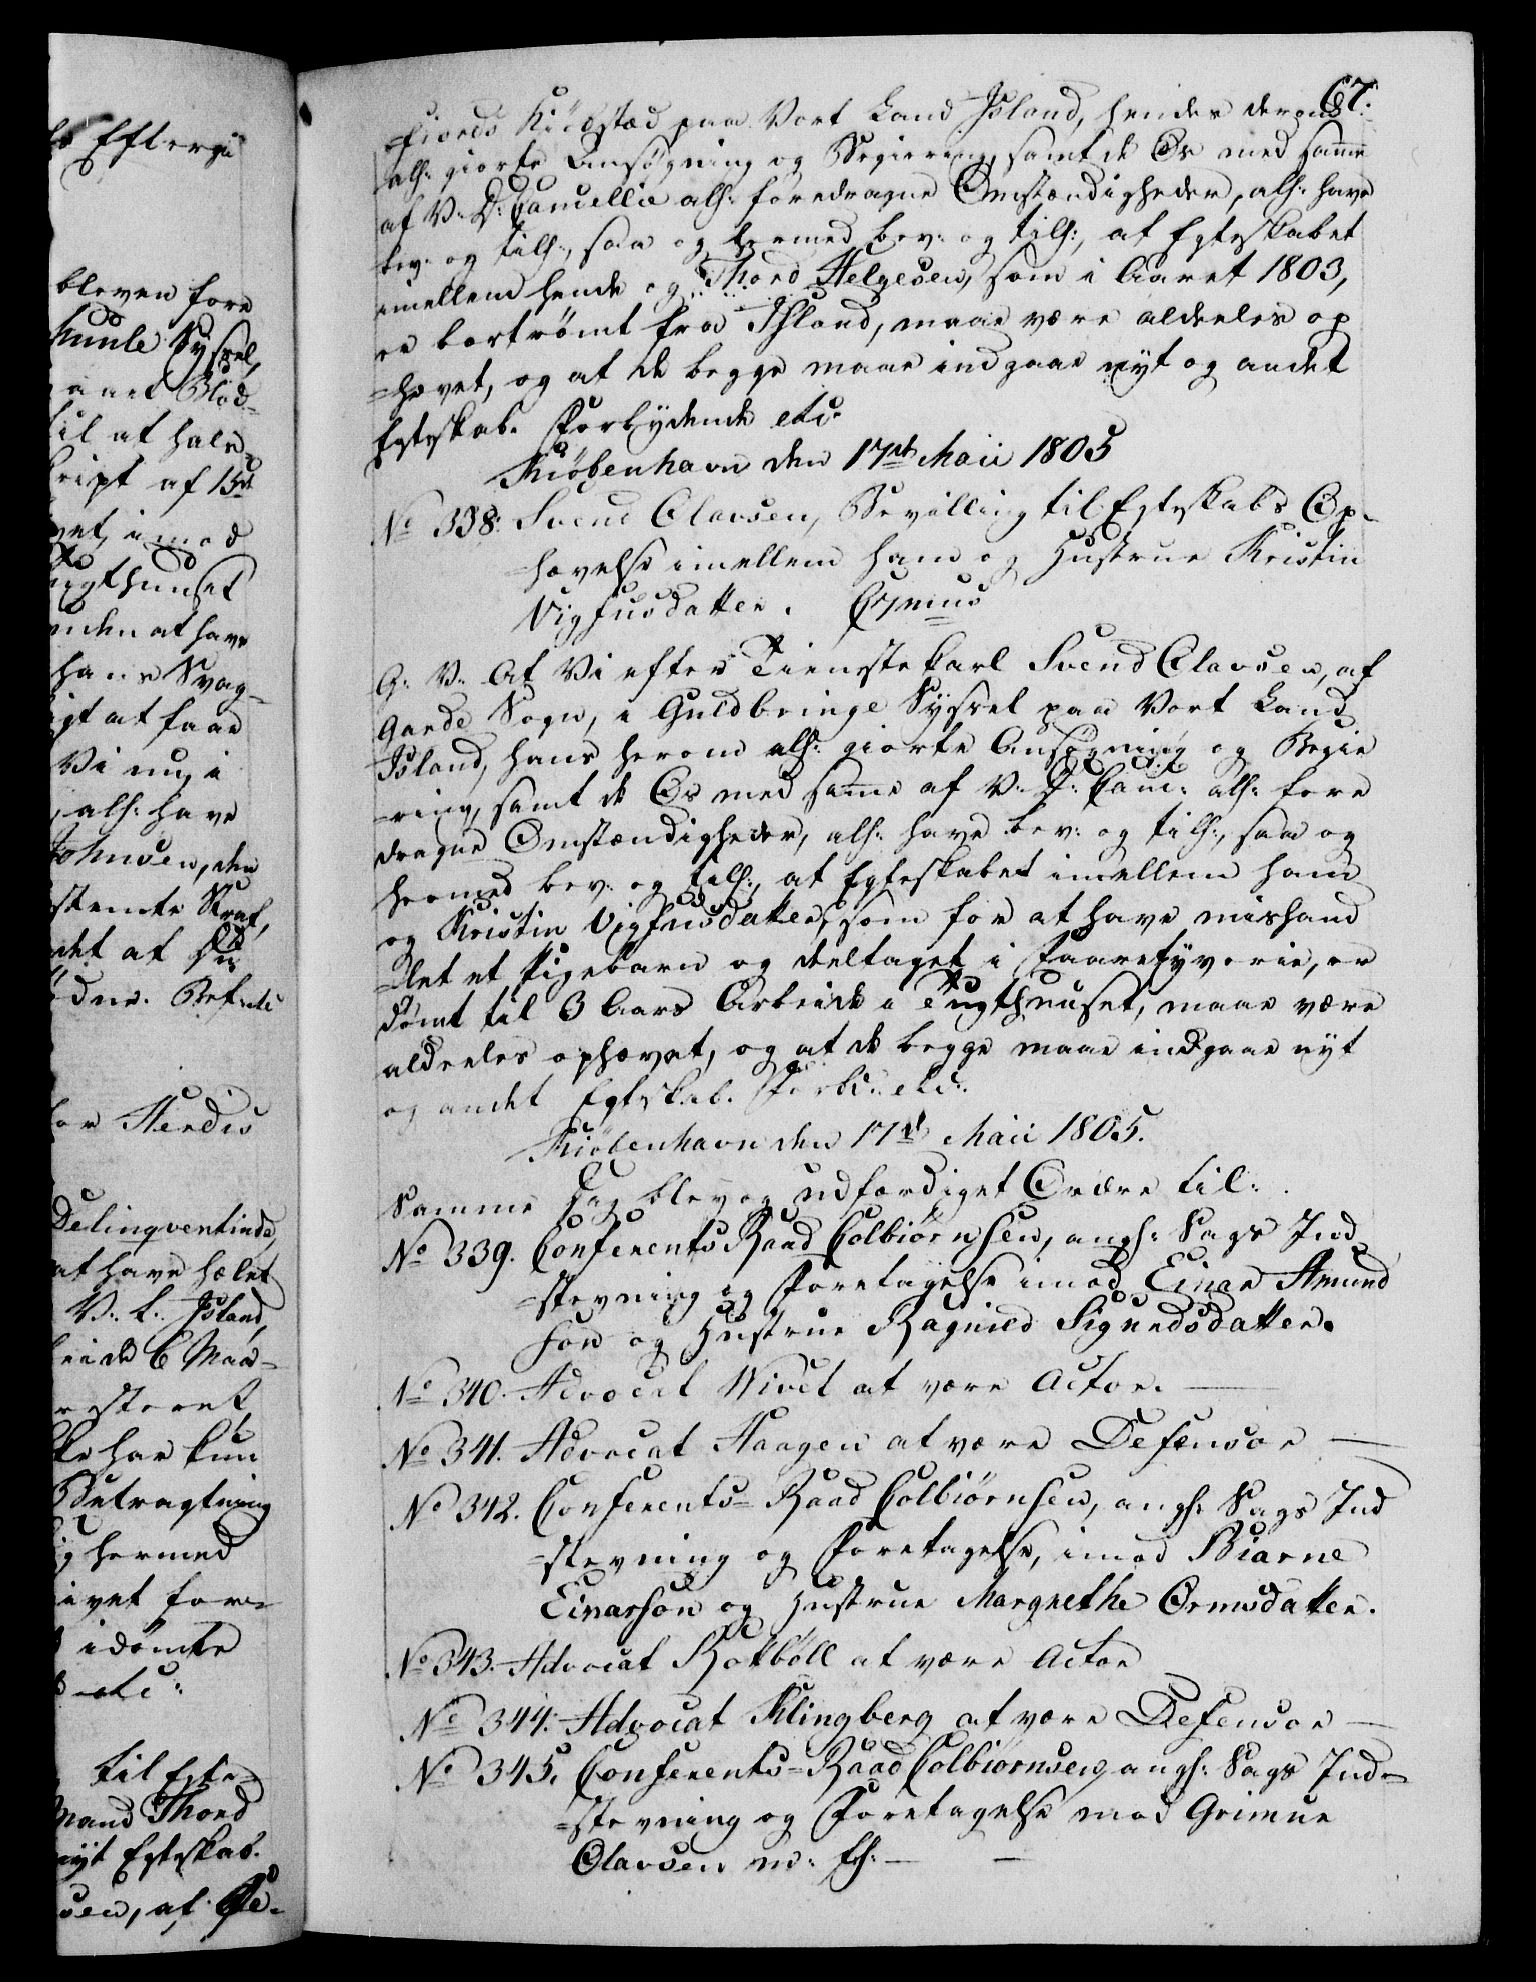 67.
fiords Kiöbstæd paa Vort Land Island, hendes derom
alh: giorte Ansögning og Begiering, samt de Os med samme
af V: D: Cancellie alh: foredragne Omstændigheder, alh: have
bev: og tilh:, saa og hermed bev: og tilh:, at Egteskabet
imellem hende og Thord Helgesen, som i Aaret 1803,
er bortrömt fra Island, maae være aldeeles op
=hævet, og at de begge maae indgaae nyt og andet
Egteskab. Forbydende etc.
Kiöbenhavn den 17de Maii 1805
No 338. Svend Olavsen, Bevilling til Egteskabs Op-
=hævelse imellem ham og Hustrue Kristin
Vigfusdatter. Gratis
G: V: At Vi efter Tienstekarl Svend Olavsen, af
Garde Sogn, i Guldbringe Syssel paa Vort Land
Island, hans herom alh: giorte Ansögning og Begie
=ring, samt de Os med samme af V: D: Canc: alh: fore
dragne Omstændigheder, alh: have bev: og tilh:, saa og
hermed bev: og tilh:, at Egteskabet imellem ham
og Kristin Vigfusdatter, som for at have mishand
=let et Pigebarn og deeltaget i Faaretyverie, er
dömt til 3 Aars Arbeide i Tugthuuset, maae være
aldeeles ophævet, og at de begge maae indgaae nyt
og andet Egteskab. Forb: etc:
Kiöbenhavn den 17de Maii 1805.
Samme Dag blev og udfærdiget Ordre til:
No 339. Conferents Raad Colbiörnsen, angh: Sags Ind
=stevning og Foretagelse imod Einar Amund
son og Hustrue Ragnild Sigurdsdatter.
No 340. Advocat Wivet at være Actor. —
No 341. Advocat Haagen at være Defensor —
No 342. Conferents=Raad Colbiörnsen, angh: Sags Ind
=stevning og Foretagelse, imod Biarne
Einarson og Hustrue Margrethe Ormsdatter.
No 343. Advocat Rotböll at være Actor
No 344. Advocat Klingberg at være Defensor —
No 345. Conferents=Raad Colbiornsen angh: Sags Ind=
=stevning og Foretagelse mod Grimur
Olavsen m: fl: — —
bleven fore
Syssel,
til at hals
ript af 13de
imod
ugthuuset
nden at have
hans Svag-
igt at faae
Vi nu, i
, alh: have
Johnsen, den
stemte Straf,
det af
for Herdis
Delinqventinde,
at have hælet
V: L: Island,
ke har kun
Betragtning
ig hermed
ivet fore
idömte
etc:
til Egte
mand Thord
nyt Egteskab.
sen, af